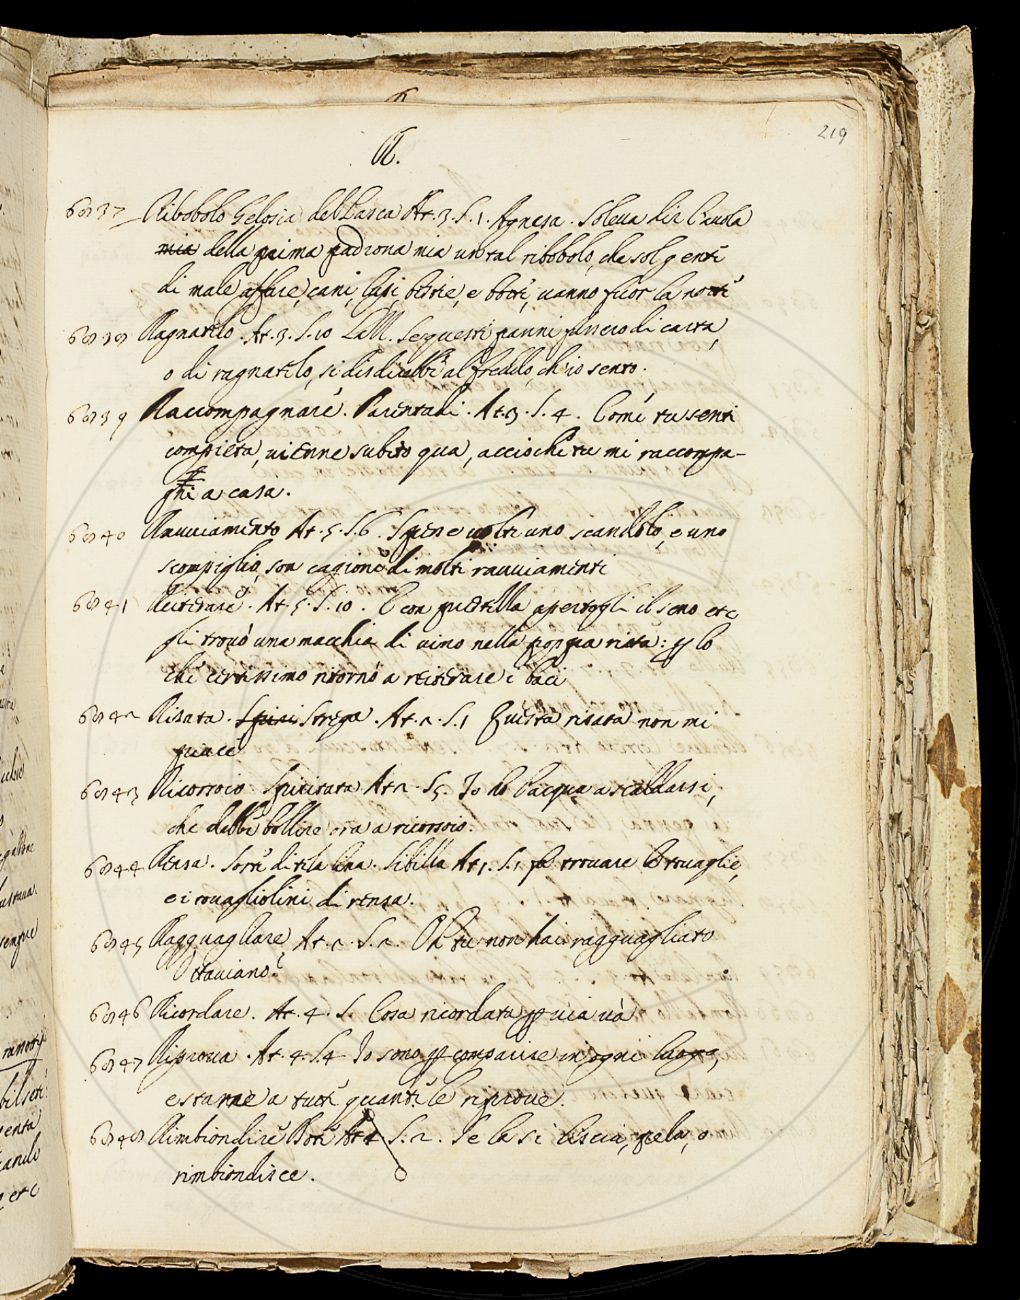 219
R.
6837 Ribobolo Gelosia del Lasca At. 3. S. 1. Agnesa. Soleva dir l'avola
mia della prima padrona mia un tal ribobolo, che sol genti
di male affare, cani, lupi, bestie, e botti, vanno fuor la notte
6838 Ragnatelo. At. 3. S. 10 Laz. Se questi panni fussero di carta,
o di ragnatelo, si disdirebbe al freddo, ch'io sento.
6839 Raccompagnare. Parentadi. At. 3. S. 4. Come tu senti
compieta, vienne subito qua, acciochè tu mi raccompa-
gni a casa.
6840 Ravviamento At. 5. S. 6. Spesse volte uno scandolo, e uno
scompiglio, son cagione di molti ravviamenti
6841 Reiterare. At. 5. S. 10. E con questa apertogli il seno etc
gli trovò una macchia di vino nella poppa ritta: p lo
che certissimo ritornò a reiterare i baci
6842 Risata. Spiri Strega. At. 2. S. 1 Questa risata non mi
piace
6843 Ricorsoio. Spiritata At. 2. S. 5. Io ho l'acqua a scaldarsi,
che debbe bollire ora a ricorsoio.
6844 Rensa. Sorte di tela lina. Sibilla At. 1. S. 1. fe trovare le tovaglie,
e i tovagliolini di rensa.
6845 Ragguagliare At. 2. S. 2. Oh tu non hai ragguagliato
Ottaviano?
6846 Ricordare. At. 4. S. Cosa ricordata p via và
6847 Riprova. At. 4. S. 4 Io sono p comparire in ogni luogo,
e starne a tutte quante le riprove.
6848 Rimbiondire Pot. At. S. 2. Se la si liscia, pela, o
rimbiondisce.